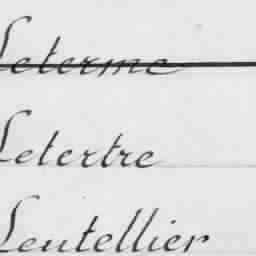 Leterme
Letertre
Leutellier